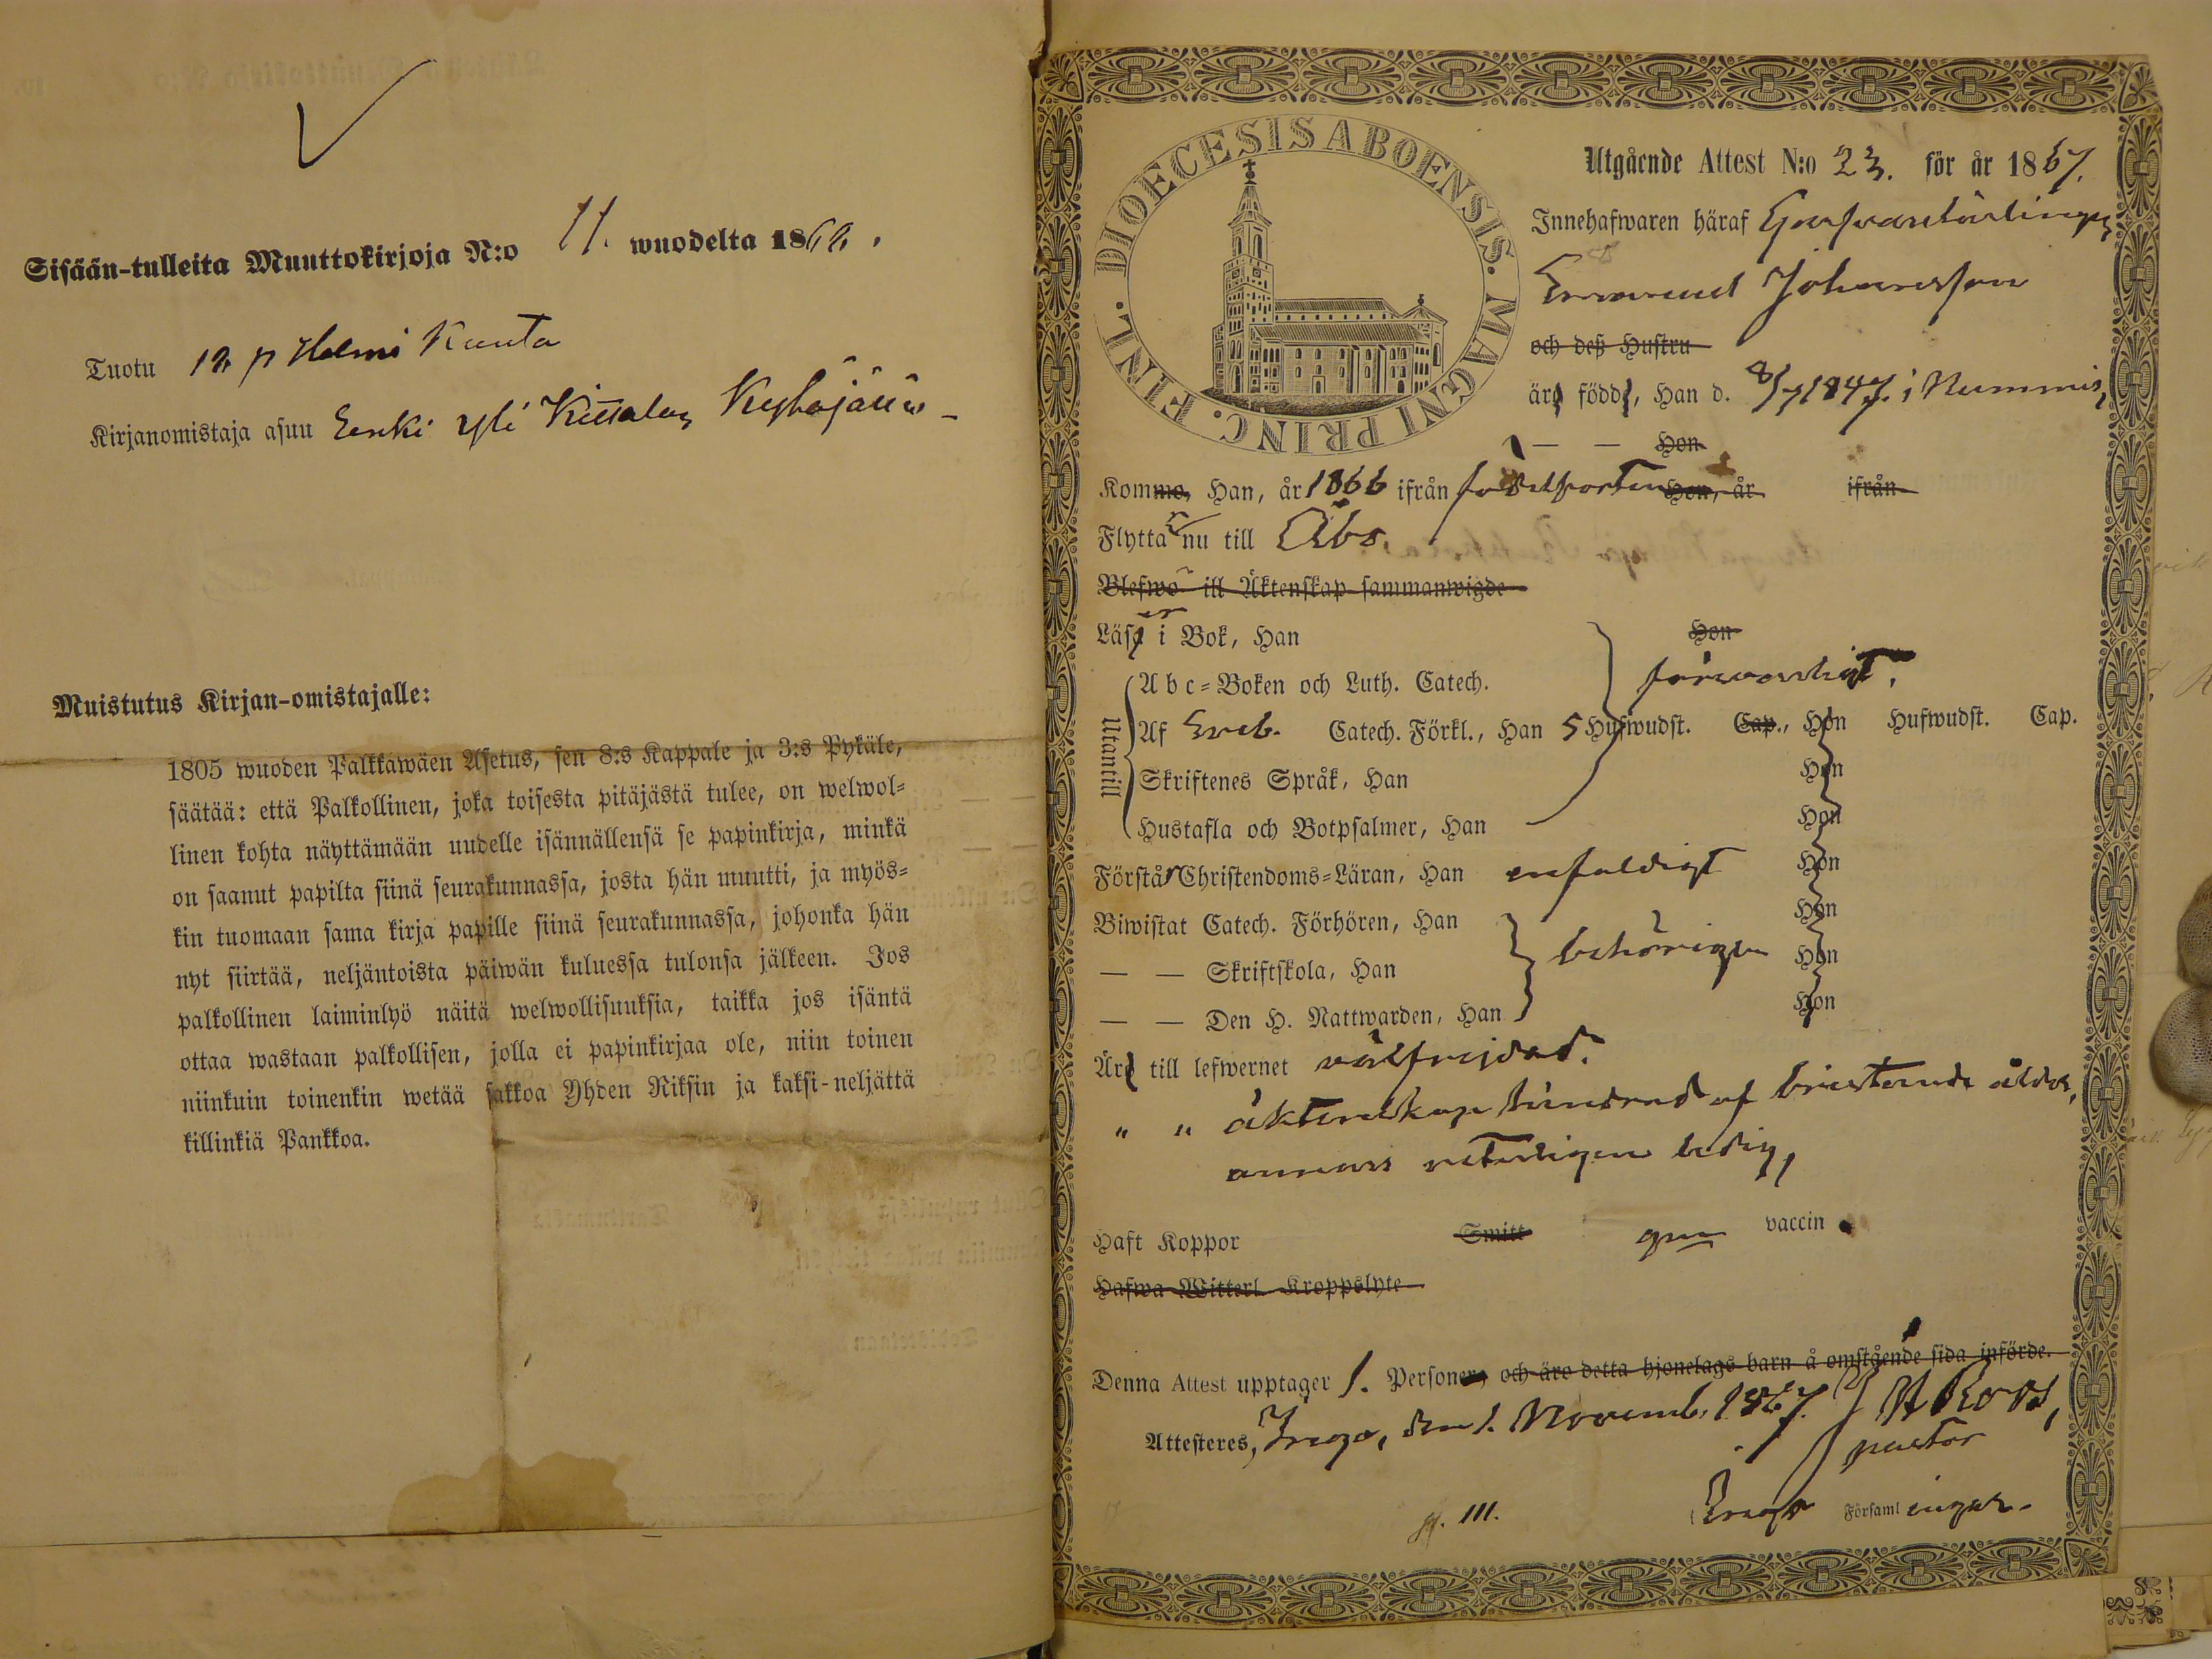 Sisään-tulleita Muuttokirjoja N:o 11. wuodelta 186
Tuotu 12 p Helmi Kuuta
Kirjanomistaja asuu Yli
Muistutus Kirjan-omistajalle:
1805 wuoden Palkkawäen Asetus, sen 8:s Kappale ja 3:s Pykäle,
säätää: että Palkollinen, joka toisesta pitäjästä tulee, on welwol-
linen kohta näyttämään uudelle isännällensä se papinkirja, minkä
on saanut papilta siinä seurakunnassa, josta hän muutti, ja myös-
kin tuomaan sama kirja papille siinä seurakunnassa, johonka hän
nyt siirtää, neljäntoista päiwän kuluessa tulonsa jälkeen. Jos
palkollinen laiminlyö näitä welwollisuuksia, taikka jos isäntä
ottaa wastaan palkollisen, jolla ei papinkirjaa ole, niin toinen
niinkuin toinenkin wetää sakkoa Yhden Riksin ja kaksi-neljättä
killinkiä Pankkoa.
DIOECESIS ABOENSIS. MAGNI PRINC. FINL.
Utgående Attest N:o 23. för år 1867.
Innehafwaren häraf Garfvarelärlingen
Emanuel Johansson
och deß Hustru
är född, Han d. 8/7 1847. i Nummis,
— — Hon
Kommo, Han, år 1866 ifrån födelseorten Hon, år ifrån
Flytta nu till Åbo.
Blefwo till Äktenskap sammanwigde
Läser i Bok, Han Hon
Utantill
Abc-Boken och Luth. Catech. försvarligt.
Af Sveb. Catech. Förkl., Han 5 Hufwudst. Cap., Hon Hufwudst. Cap.
Skriftenes Språk, Han Hon
Hustafla och Botpsalmer, Han Hon
Förstår Christendoms-Läran, Han enfaldigt Hon
Biwistat Catech. Förhören, Han Hon
— — Skriftskola, Han behörigen Hon
— — Den H. Nattwarden, Han Hon
Är till lefwernet välfrejdad.
" " äktenskap hindrad af bristande ålder,
annars veterligen ledig,
Haft Koppor Smitt gm vaccin
Hafwa Witterl. Kroppslyte
Denna Attest upptager 1. Personer, och äro detta hjonelags barn å omstående sida införde.
Attesteres, Ingo, den 1. Novemb. 1867. Roos,
pastor
Ingo Församlingar.
pg. 111.